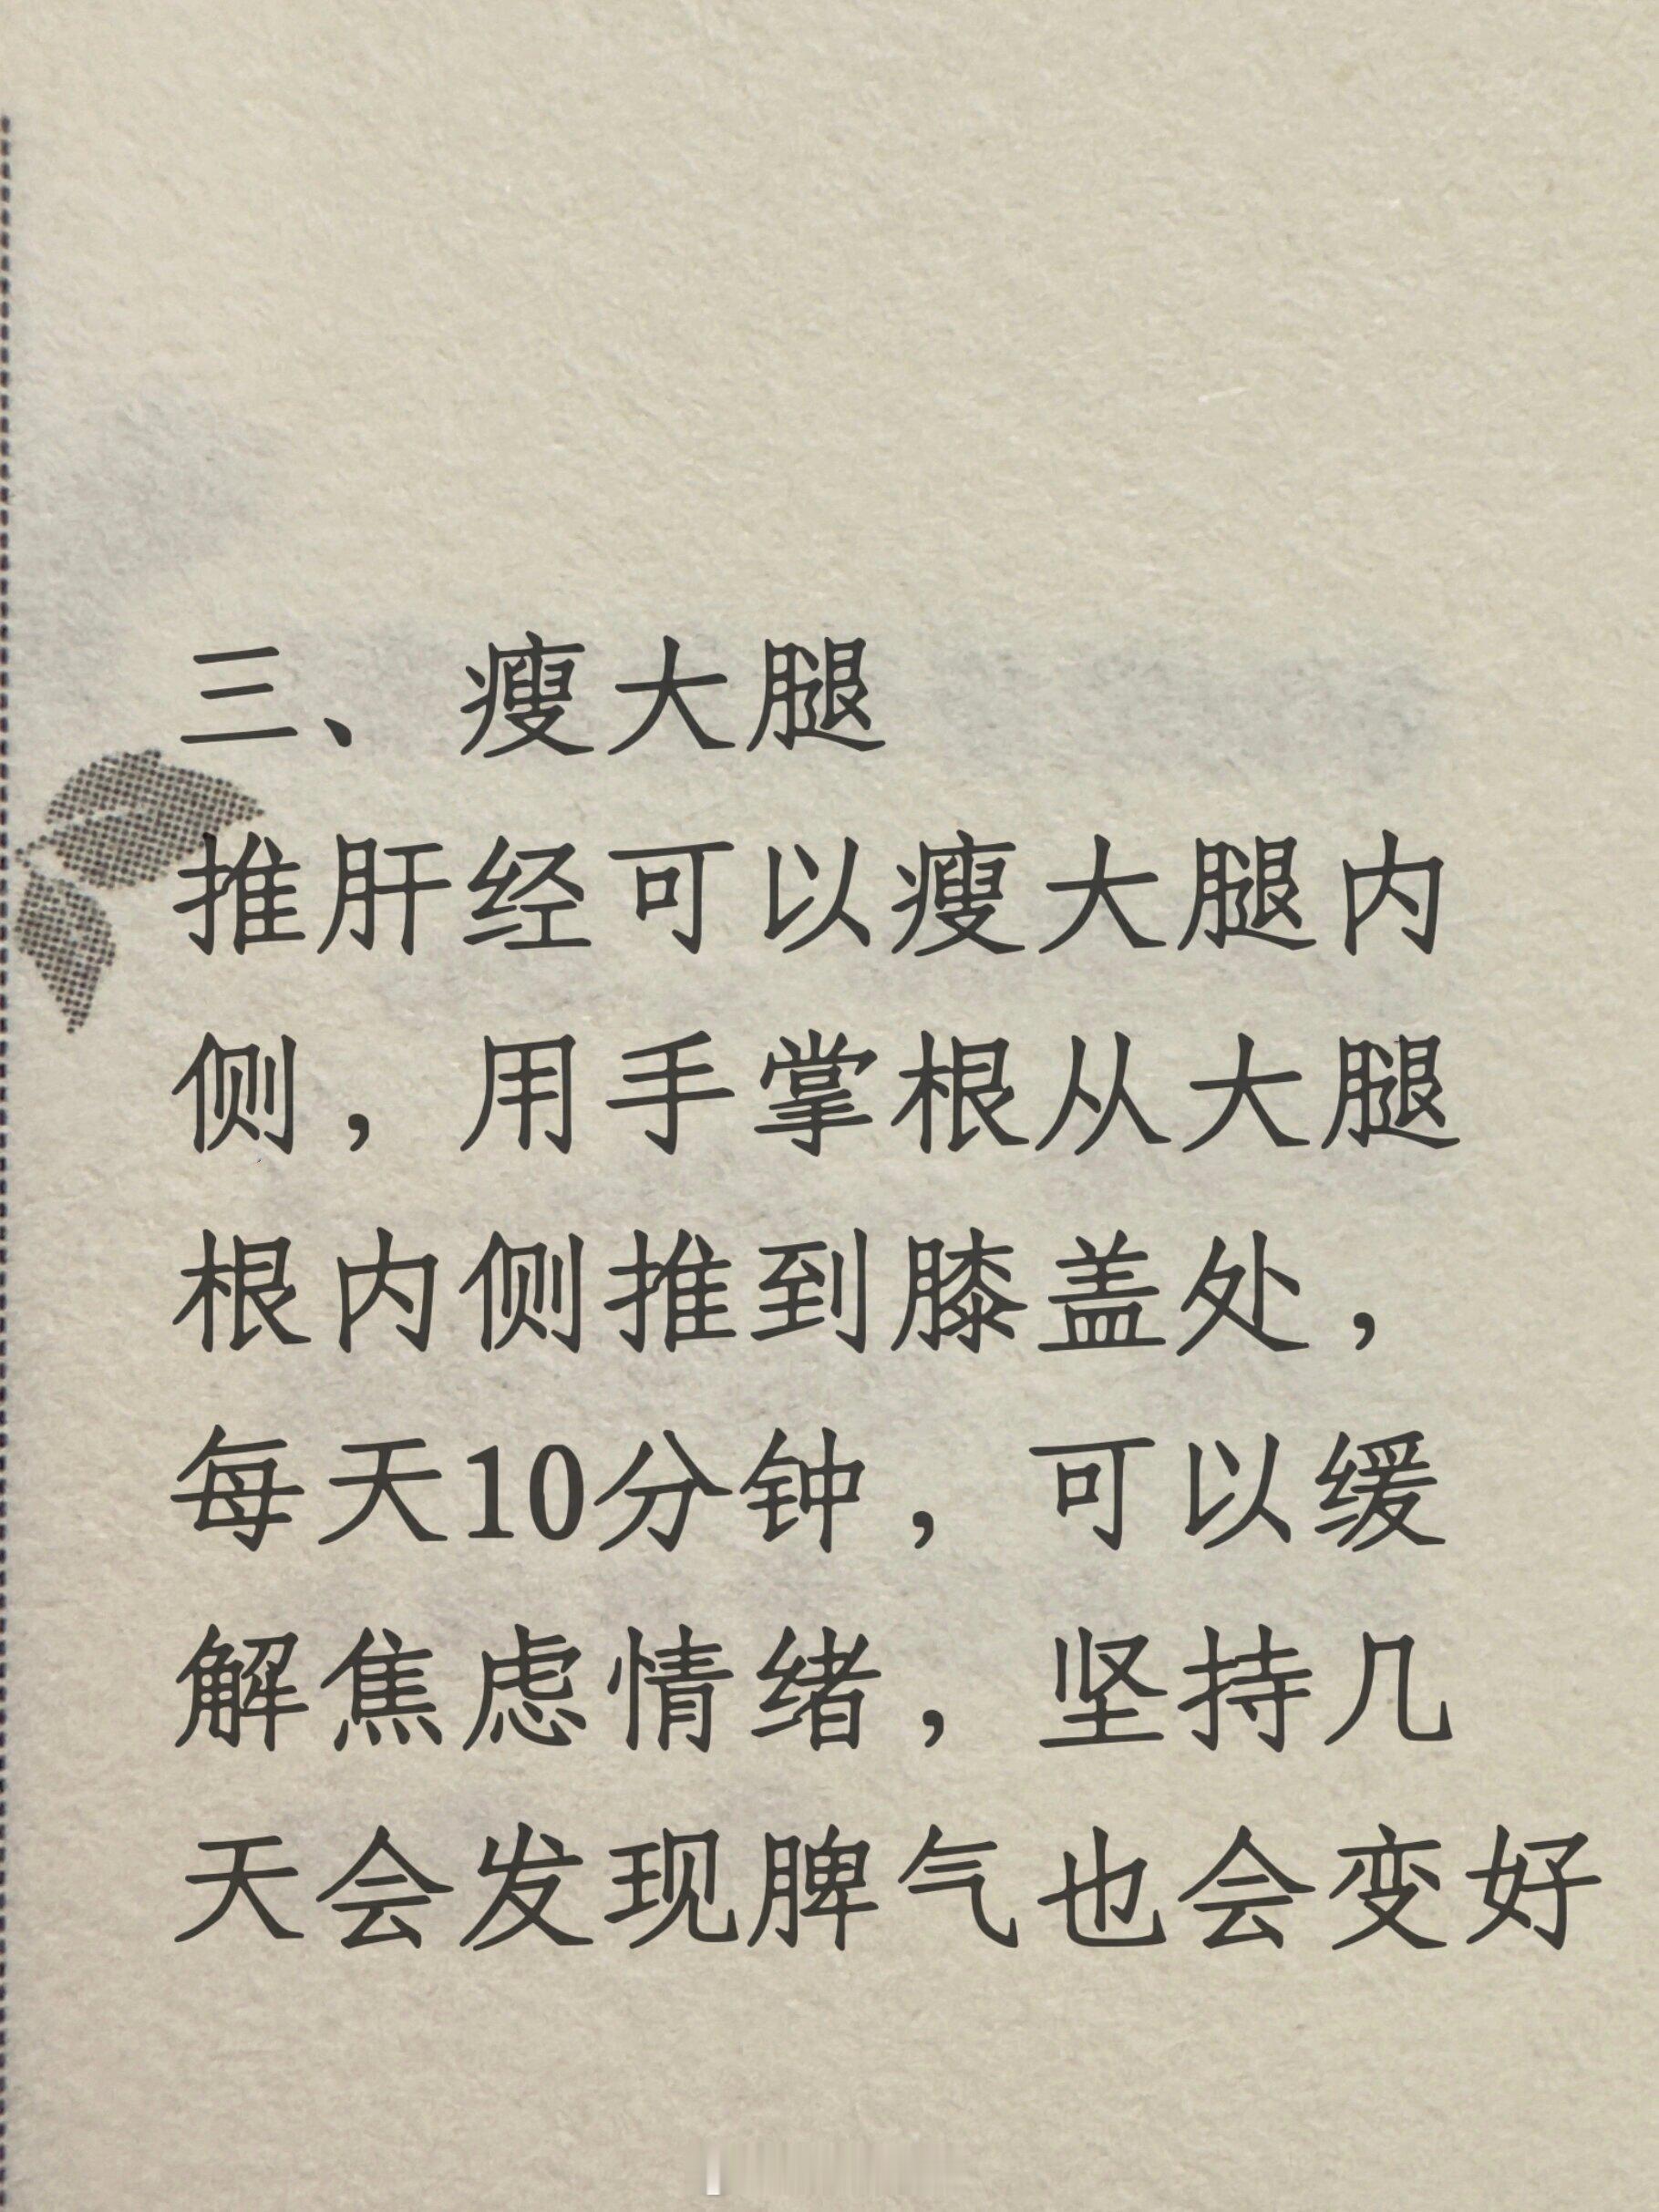 三、瘦大腿
推肝经可以瘦大腿内
侧，用手掌根从大腿
根内侧推到膝盖处，
每天10分钟，可以缓
解焦虑情绪，坚持几
天会发现脾气也会变好